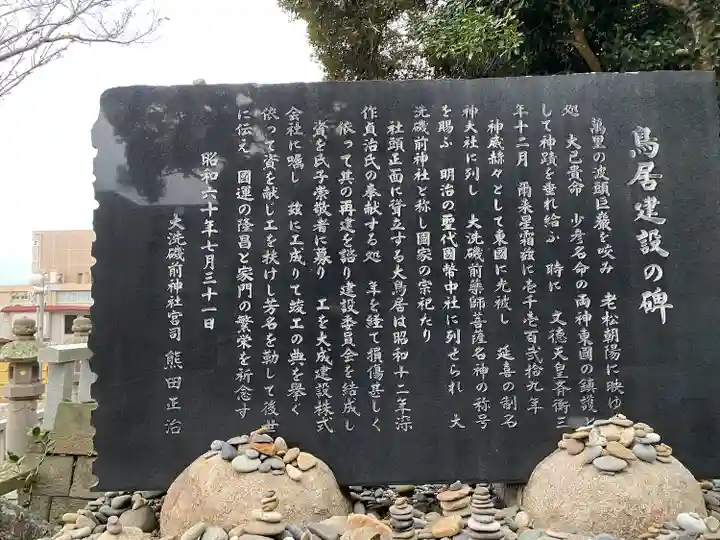 鳥居建設の碑
萬里の波頭巨巌を咬み 老松朝陽に映ゆ
処 大己貴命 少彦名命の両神東國の鎮護と
して神蹟を垂れ給ふ 時に 文徳天皇斉衡三
年十二月 爾来星霜茲に壱千壱百弐拾九年
神威赫々として東國に光被し 延喜の制名
神大社に列し 大洗磯前薬師菩薩名神の称号
を賜ふ 明治の聖代國幣中社に列せられ 大
洗磯前神社と称し國家の宗祀たり
社頭正面に聳立する大鳥居は昭和十二年深
作貞治氏の奉献する処 年を経て損傷甚しく
依って其の再建を諮り建設委員会を結成し
資を氏子崇敬者に募り 工を大成建設株式
会社に嘱し 茲に工成りて竣工の典を挙ぐ
依って資を献じ工を扶けし芳名を勒して後世
に伝え 國運の隆昌と家門の繁栄を祈念す
昭和六十年七月三十一日
大洗磯前神社宮司 熊田正治